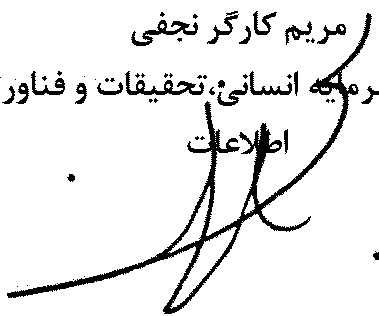 مریم کارگر نجفی
رمایه انسانی،تحقیقات و فناور
اطلاعات